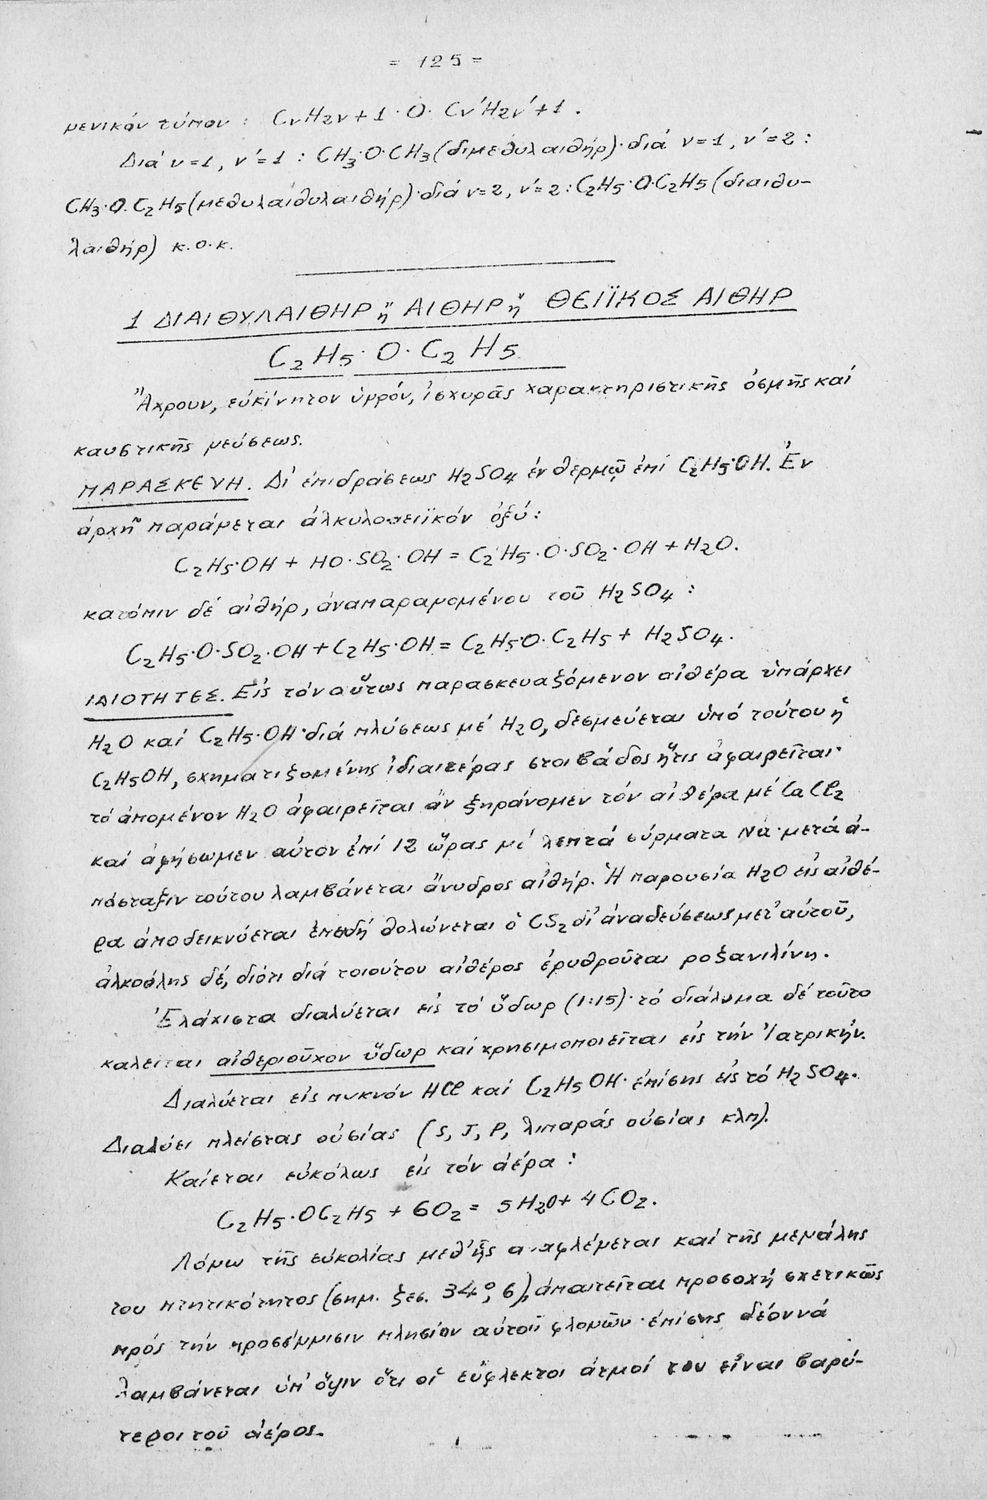 = 125 =
μενικόν τύπον : CνH2ν+1·O·Cν′H2ν′+1.
Διά ν=1, ν′=1 : CH3·O·CH3 (διμεθυλαιθήρ)· διά ν=1, ν′=2 :
CH3·O·C2H5 (μεθυλαιθυλαιθήρ)· διά ν=2, ν′=2 : C2H5·O·C2H5 (διαιθυ-
λαιθήρ) κ.ο.κ.
1 ΔΙΑΙΘΥΛΑΙΘΗΡ ἤ ΑΙΘΗΡ ἤ ΘΕΙΪΚΟΣ ΑΙΘΗΡ
C2H5·O·C2H5
Ἄχρουν, εὐκίνητον ὑγρόν, ἰσχυρᾶς χαρακτηριστικῆς ὀσμῆς καί
καυστικῆς γεύσεως.
ΠΑΡΑΣΚΕΥΗ. Δι' ἐπιδράσεως H2SO4 ἐν θερμῷ ἐπί C2H5·OH. Ἐν
ἀρχῇ παράγεται ἀλκυλοθειϊκόν ὀξύ:
C2H5·OH + HO·SO2·OH = C2H5·O·SO2·OH + H2O.
κατόπιν δέ αἰθήρ, ἀναπαραγομένου τοῦ H2SO4 :
C2H5·O·SO2·OH + C2H5·OH = C2H5·O·C2H5 + H2SO4.
ΙΔΙΟΤΗΤΕΣ. Εἰς τόν οὕτως παρασκευαζόμενον αἰθέρα ὑπάρχει
H2O καί C2H5·OH· διά πλύσεως μέ H2O, δεσμεύεται ὑπό τούτου ἡ
C2H5OH, σχηματιζομένης ἰδιαιτέρας στοιβάδος ἥτις ἀφαιρεῖται·
τό ἀπομένον H2O ἀφαιρεῖται ἄν ξηράνομεν τόν αἰθέρα μέ CaCl2
καί ἀφήσωμεν αὐτόν ἐπί 12 ὥρας μέ λεπτά σύρματα Na· μετά ἀ-
πόσταξιν τούτου λαμβάνεται ἄνυδρος αἰθήρ. Ἡ παρουσία H2O εἰς αἰθέ-
ρα ἀποδεικνύεται ἐπειδή θολώνεται ὁ CS2 δι' ἀναδεύσεως μετ' αὐτοῦ,
ἀλκοόλης δέ, διότι διά τοιούτου αἰθέρος ἐρυθροῦται ροζανιλίνη.
Ἐλάχιστα διαλύεται εἰς τό ὕδωρ (1:15)· τό διάλυμα δέ τοῦτο
καλεῖται αἰθεριοῦχον ὕδωρ καί χρησιμοποιεῖται εἰς τήν Ἰατρικήν.
Διαλύεται εἰς πυκνόν HCl καί C2H5OH· ἐπίσης εἰς τό H2SO4.
Διαλύει πλείστας οὐσίας (S, J, P, λιπαράς οὐσίας κλπ).
Καίεται εὐκόλως εἰς τόν ἀέρα :
C2H5·OC2H5 + 6O2 = 5H2O + 4CO2.
Λόγω τῆς εὐκολίας μεθ' ἧς ἀναφλέγεται καί τῆς μεγάλης
του πτητικότητος (σημ. ζεσ. 34°,6), ἀπαιτεῖται προσοχή σχετικῶς
πρός τήν προσέγγισιν πλησίον αὐτοῦ φλογῶν· ἐπίσης δέον νά
λαμβάνεται ὑπ' ὄψιν ὅτι οἱ εὔφλεκτοι ἀτμοί του εἶναι βαρύ-
τεροι τοῦ ἀέρος.